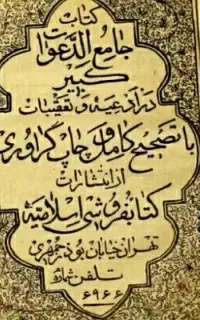 کتاب
جامع الدعوات
کبیر
در ادعیه و تعقیبات
با تصحیح کامل و چاپ گراوری
از انتشارات
کتابفروشی اسلامیه
تهران خیابان بوذرجمهری
تلفن شماره
۶۹۶۶